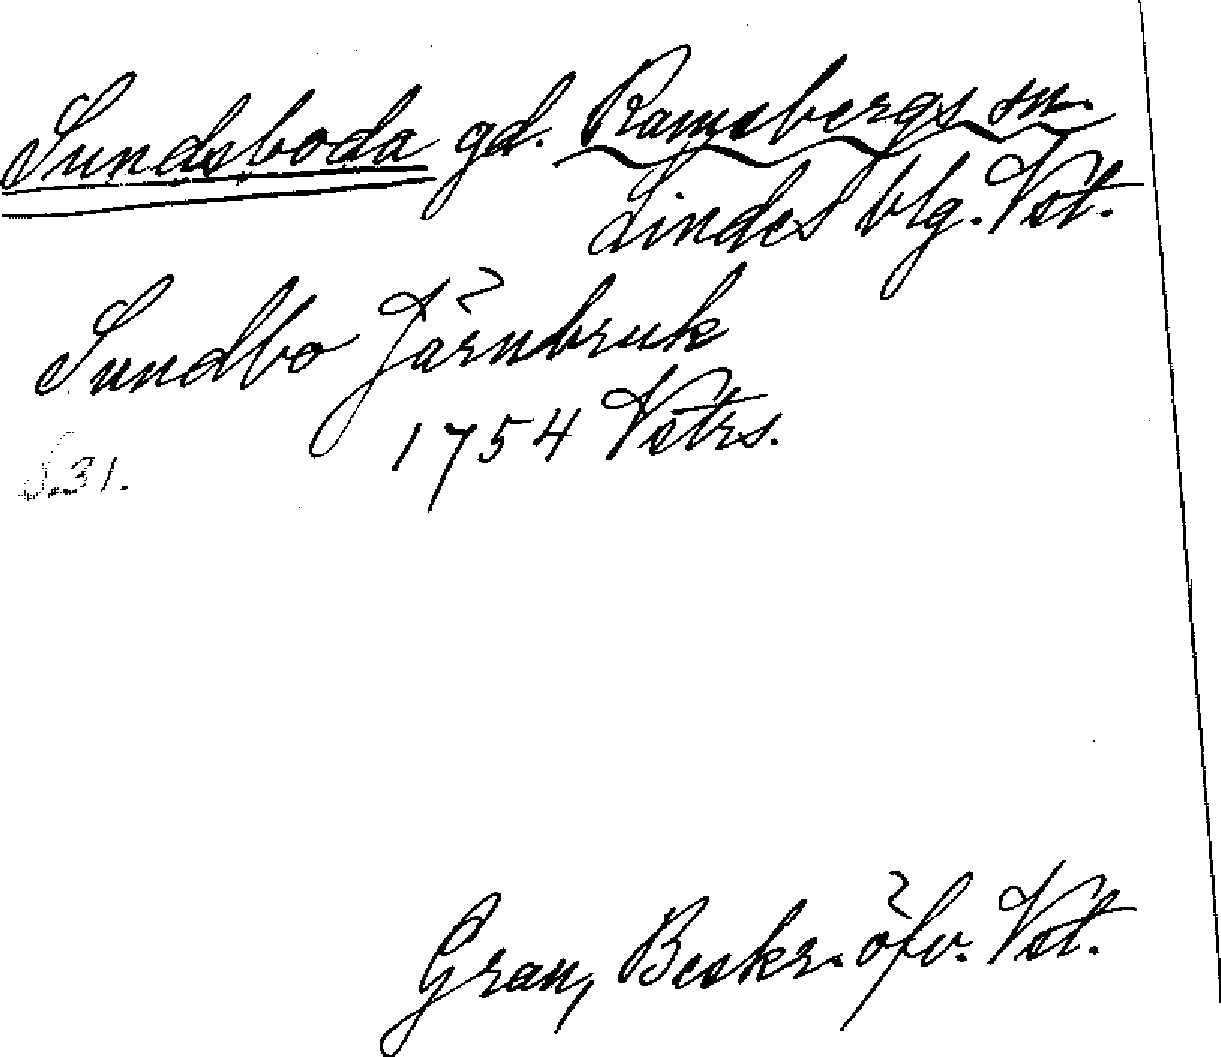 Sundsboda gd. Ramsbergs sn.
Lindes blg. Vst.
Sundbo Järnbruk
1754 Vstrs.
S. 31.
Grau, Beskr. öfv. Vst.